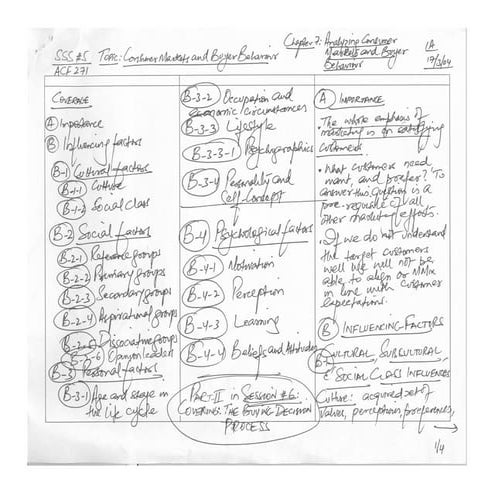 Chapter 7: Analyzing Consumer
Markets and Buyer
Behaviour
1A
19/3/04
SSS #5 Topic: Consumer Markets and Buyer Behaviour
ACF 271
COVERAGE
A Importance
B Influencing factors
B-1 Cultural factors
B-1-1 Culture
B-1-2 Social Class
B-2 Social factors
B-2-1 Reference groups
B-2-2 Primary Groups
B-2-3 Secondary groups
B-2-4 Aspirational groups
B-2-5 Dissociative groups
B-2-6 Opinion leaders
B-3 Personal factors
B-3-1 Age and stage in
the life cycle
B-3-2 Occupation and
economic circumstances
B-3-3 Lifestyle
B-3-3-1 Psychographics
B-3-4 Personality and
Self-Concept
B-4 Psychological factors
B-4-1 Motivation
B-4-2 Perception
B-4-3 Learning
B-4-4 Beliefs and Attitudes
PART-II in SESSION #6:
COVERING THE BUYING DECISION
PROCESS
A IMPORTANCE
• The whole emphasis of
marketing is on satisfying
customers.
• What customers need
want, and prefer? To
answer this question is a
pre-requisite of all
other marketing efforts.
• If we do not understand
the target customers
well we will not be
able to align our MMix
in line with customer
expectations.
B INFLUENCING FACTORS
CULTURAL, SUBCULTURAL,
& SOCIAL CLASS INFLUENCES
Culture: acquired set of
values, perception, preferences,
1/4